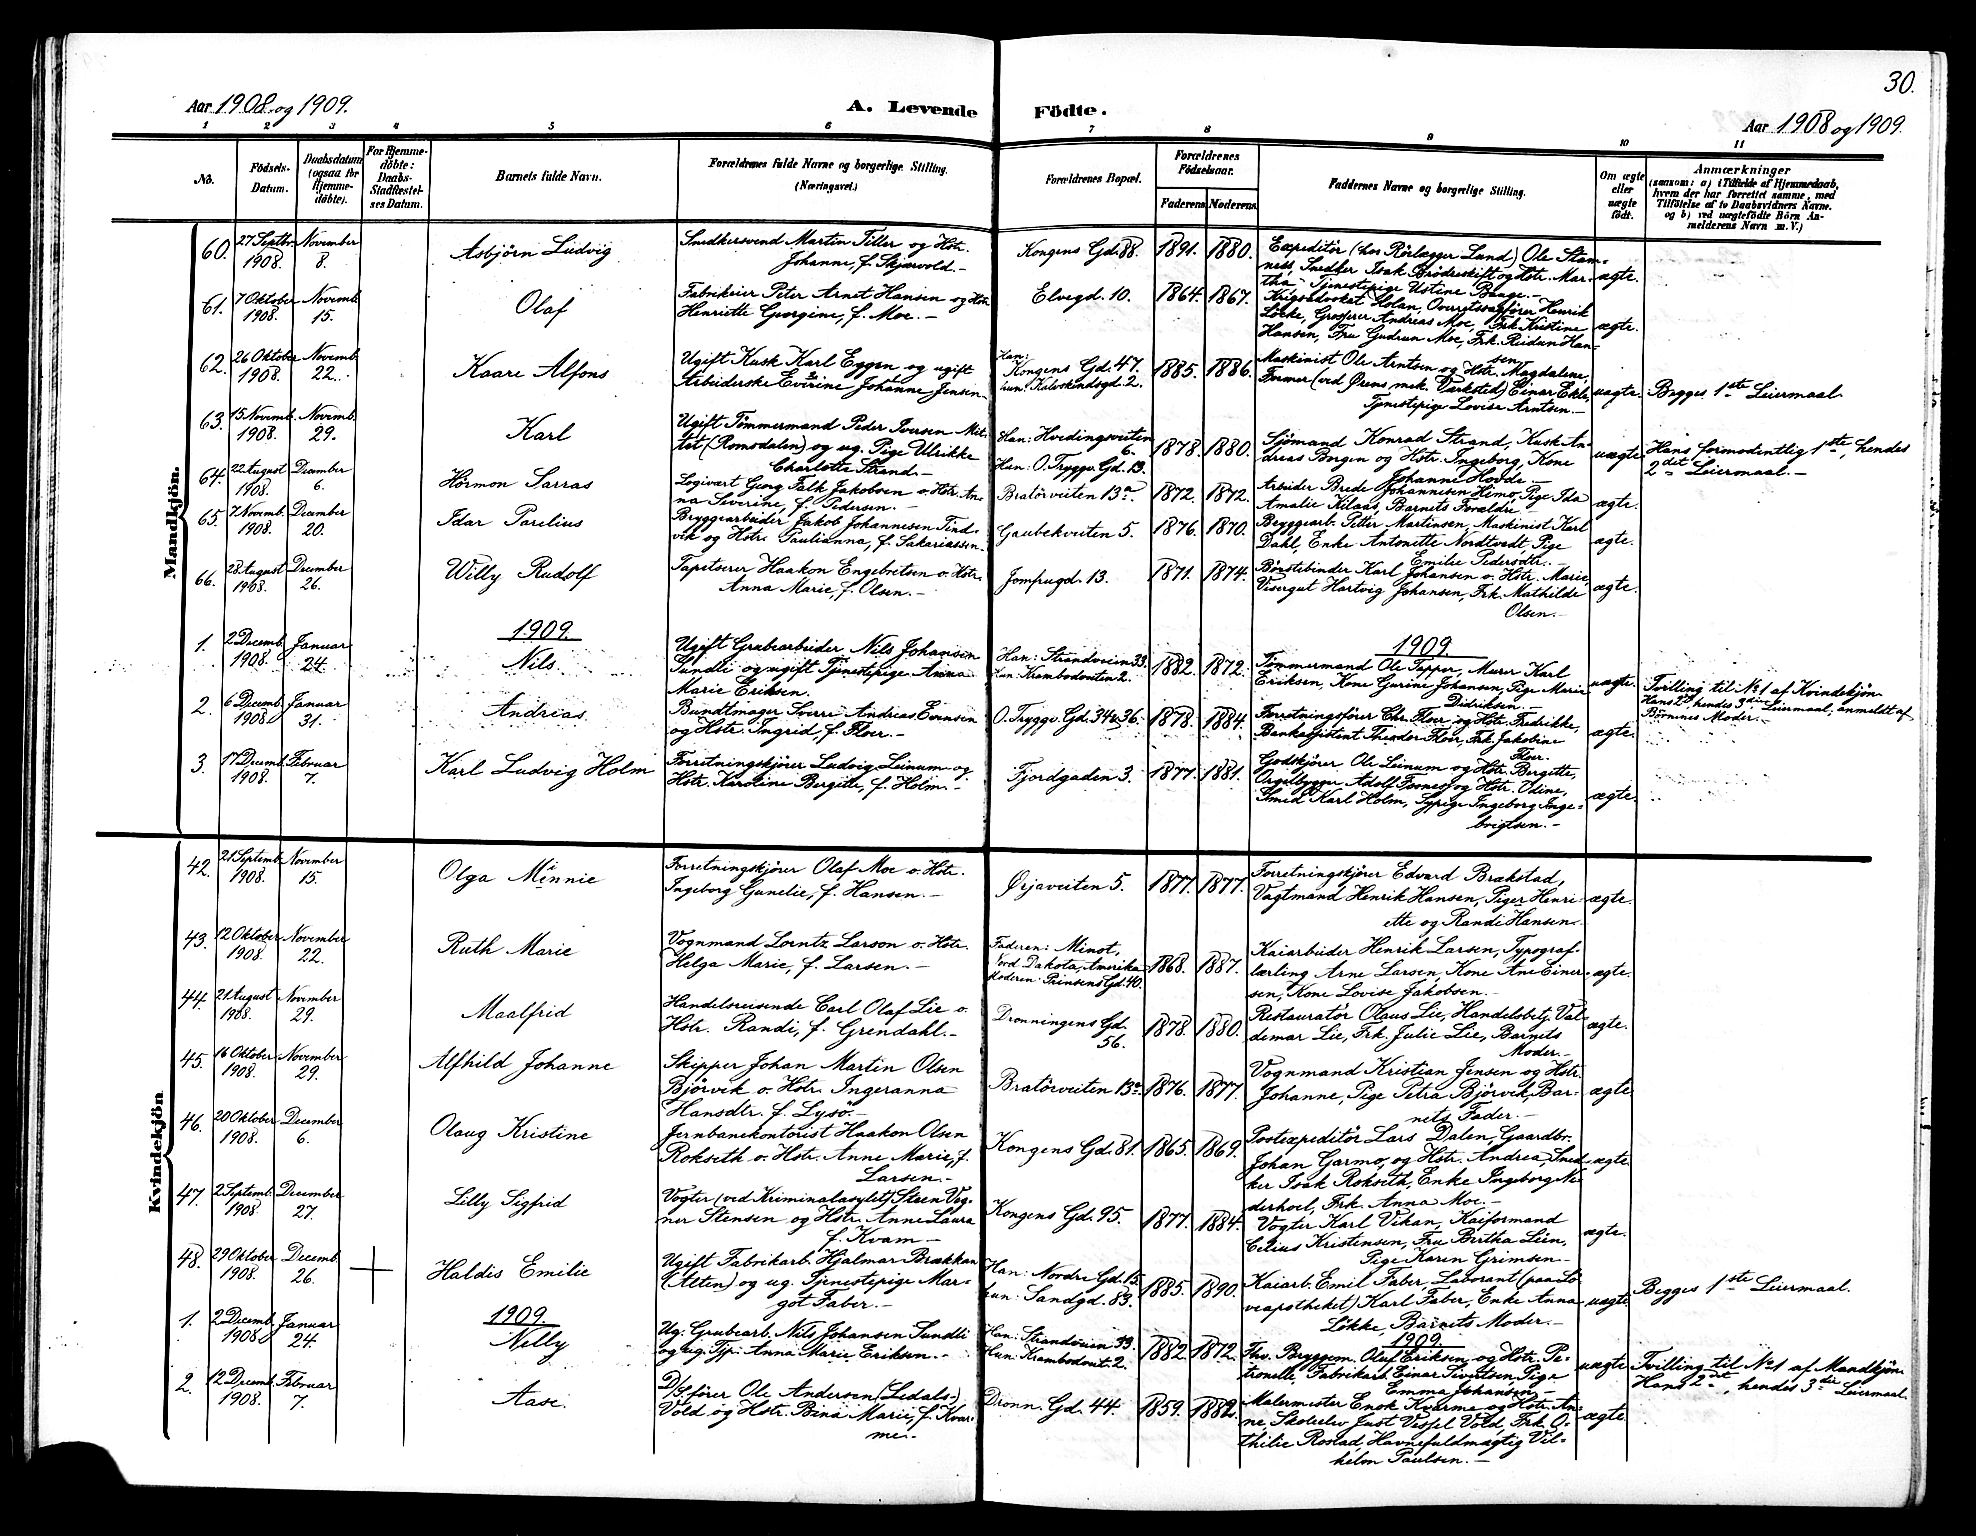 30.
Aar 1908 og 1909.
A. Levende Födte.
Aar 1908 og 1909.
1 2 3 4 5 6 7 8 9 10 11
No.
Födsels-Datum.
Daabsdatum (ogsaa for Hjemmedöbte).
For Hjemmedöbte: Daabs-Stadfæstelses Datum.
Barnets fulde Navn.
Forældrenes fulde Navne og borgerlige Stilling. (Næringsvei.)
Forældrenes Bopæl.
Forældrenes Födselsaar.
Faderens. Moderens.
Faddernes Navne og borgerlige Stilling.
Om ægte eller uægte födt.
Anmærkninger
(saasom: a) i Tilfælde af Hjemmedaab, hvem der har forrettet samme, med Tilföielse af to Daabsvidners Navne, og b) ved uægtefödte Börn Anmelderens Navn m. V.)
Mandkjön.
60. 27 Septbr. 1908. November 8. Asbjörn Ludvig
Snedkersvend Martin Tiller og Hstr.
Johanne, f. Skjærvold.-
Kongens Gd. 88. 1891. 1880.
Expeditör (hos Rörlægger Land) Ole Stam-
ness, Snedker Isak Bröderskift og Hstr. Mar-
tha, Tjenestepige Ustine Bauge.-
ægte.
61. 7 Oktober 1908. Novemb. 15. Olaf
Fabrikeier Peter Arnet Hansen og Hstr
Henriette Georgine, f. Moe.-
Elvegd. 10. 1864. 1867.
Krigsadvokat Holan, Overretssagförer Henrik
Löcke, Grosserer Andreas Moe, Frk Kristine
Hansen, Fru Gudrun Moe, Frk. Reidun Han-
sen
ægte.
62. 26 Oktober 1908. Novemb. 22. Kaare Alfons
Ugift Kusk Karl Eggen og ugift
Arbeiderske Everine Johanne Jensen.
Han: Kongens Gd. 47.
hun: Kalvskindsgd. 2. 1885. 1886.
Maskinist Ole Arntsen og Hstr. Magdalene,
Former (ved Ørens mek. Værksted) Einar Ekle,
Tjenestepige Lovise Arntsen.-
uægte. Begges 1ste Leiermaal.
63. 15 Novemb. 1908. Novemb. 29. Karl
Ugift Tømmermand Peder Iversen Mit-
tet (Romsdalen) og ug. Pige Ulrikke
Charlotte Strand.-
Han: Hvedingsveiten 6.-
Han: O. Tryggv. Gd. 13. 1878. 1880.
Sjömand Konrad Strand, Kusk An-
dreas Borgen og Hstr. Ingeborg, Kone
Johanne Hovde.-
uægte. Hans formodentlig 1ste, hendes
2det Leiermaal.-
64. 22 August 1908. December 6. Hörmon Sarras
Logivært Georg Falk Jakobsen o. Hstr. An-
na Severine, f. Pedersen.-
Bratörveiten 13a 1872. 1872.
Arbeider Brede Johannesen Hemo, Pige Ida
Amalie Kilaas, Barnets Forældre.-
ægte.
65. 7 Novemb. 1908. December 20. Idar Parelius
Bryggearbeider Jakob Johannesen Tind-
vik og Hstr. Paulianna, f. Sakariassen.
Gaubekveiten 5. 1876. 1870.
Bryggearb. Petter Martinsen, Maskinist Karl
Dahl, Enke Antonette Nordtvedt, Pige
Emilie Pedersdtr.-
ægte.
66. 28 August 1908. December 26. Willy Rudolf
Tapetserer Haakon Engebretsen o. Hstr.
Anna Marie, f. Olsen.-
Jomfrugd. 13. 1871. 1874.
Börstebinder Karl Johansen o. Hstr. Marie,
Visergut Hartvig Johansen, Frk. Mathilde
Olsen.-
ægte.
1909. 1909.
1. 2 Decemb. 1908. Januar 24. Nils.
Ugift Grubearbeider Nils Johansen
Sundli og ugift Tjenestepige Anna
Marie Eriksen.
Han: Strandveien 33.
Hun: Krambodveiten 2. 1882. 1872.
Tömmermand Ole Tapper, Murer Karl
Eriksen, Kone Gurine Johansen, Pige Marie
Didriksen.
uægte. Tvilling til No 1 af Kvindekjön
Hans 2det, hendes 3die Leiermaal, anmeldt af
Börnenes Moder.-
2. 6 Decemb. 1908. Januar 31. Andreas.
Bundtmager Sverre Andreas Evensen
og Hstr. Ingrid, f. Floer.-
O. Tryggv. Gd. 34 & 36. 1878. 1884.
Forretningsförer Chr. Floer og Hstr. Fredrikke,
Bankassistent Theodor Floer, Frk. Jakobine
Floer.
ægte.
3. 17 Decemb. 1908. Februar 7. Karl Ludvig Holm
Forretningskjörer Ludvig Leinum og
Hstr. Karoline Bergitte, f. Holm.-
Fjordgaden 3. 1877. 1881.
Godskjörer Ole Leinum og Hstr. Bergitte,
Orgelbygger Adolf Fosnes og Hstr. Odine,
Smed Karl Holm, Sypige Ingeborg Inge-
brigtsen.-
ægte.
Kvindekjön
42. 21 Septemb. 1908. November 15. Olga Minnie
Forretningskjörer Olaf Moe o. Hstr.
Ingeborg Gunelie, f. Hansen.-
Ørjaveiten 5. 1877. 1877.
Forretningskjörer Edvard Brækstad,
Vagtmand Henrik Hansen, Piger Henri-
ette og Randi Hansen.
ægte.
43. 12 Oktober 1908. November 22. Ruth Marie
Vognmand Lorntz Larson o. Hstr.
Helga Marie, f. Larsen.-
Faderen: Minot,
Nord Dakota, Amerika
Moderen: Prinsens Gd. 40. 1868. 1887.
Kaiarbeider Henrik Larsen, Typograf-
lærling Arne Larsen, Kone Ane Einer-
sen, Kone Lovise Jakobsen.-
ægte.
44. 21 August 1908. November 29. Maalfrid
Handelsreisende Carl Olaf Lie o.
Hstr. Randi, f. Grendahl.-
Dronningens Gd. 56. 1878. 1880.
Restauratör Olaus Lie, Handelsbetj. Val-
demar Lie, Frk. Julie Lie, Barnets
Moder.-
ægte.
45. 16 Oktober 1908. November 29. Alfhild Johanne
Skipper Johan Martin Olsen
Björvik o. Hstr. Ingeranna
Hansdtr. f. Lysö.-
Bratörveiten 13a 1876. 1877.
Vognmand Kristian Jensen og Hstr.
Johanne, Pige Petra Björvik, Bar-
nets Fader.-
ægte.
46. 20 Oktober 1908. December 6. Olaug Kristine
Jernbanekontorist Haakon Olsen
Rokseth o. Hstr. Anne Marie, f.
Larsen.-
Kongens Gd. 81. 1865. 1869.
Postexpeditör Lars Dalen, Gaardbr.
Johan Garmo, og Hstr. Andrea, Sned-
ker Isak Rokseth, Enke Ingeborg Ne-
derhoel, Frk. Anna Moe.-
ægte.
47. 2 Septemb. 1908. December 27. Lilly Sigfrid
Vogter (ved Kriminalasylet) Steen Vog-
ner Stensen og Hstr. Anne Laura
f. Kvam-
Kongens Gd. 95. 1877. 1884.
Vogter Karl Vikan, Kaiformand
Celius Kristensen, Fru Bertha Lien,
Pige Karen Grimsen-
ægte.
48. 29 Oktober 1908. Decemb. 26. Haldis Emilie
Ugift Fabrikarb. Hjalmar Brækkan
(Alten) og ug. Tjenestepige Mar-
got Faber.-
Han: Nordre Gd. 15.
hun: Sandgd. 83. 1885. 1890.
Kaiarb. Emil Faber, Laborant (paa Lö-
veapotheket) Karl Faber, Enke Anna
Lökke, Barnets Moder.-
uægte. Begges 1ste Leiermaal.
1909. 1909.
1. 2 Decemb. 1908. Januar 24. Nelly
Ug. Grubearb. Nils Johansen Sundli
og ug. Tjp. Anna Marie Eriksen.-
Han: Strandveien 33.
Hun Krambodveit. 2. 1882. 1872.
Fhv. Bryggem. Oluf Eriksen og Hstr. Pe-
tronelle, Fabrikarb. Einar Sivertsen, Pige
Emma Johansen.-
uægte. Tvilling til No 1 af Mandkjön
Hans 2det, hendes 3die Leiermaal.
2. 12 Decemb. 1908. Februar 7. Aase.
D/s förer Ole Andersen (Ledals-)
Vold og Hstr. Bina Marie, f. Kvar-
me.-
Dronn. Gd. 44. 1859. 1882.
Malermester Enok Kvarme og Hstr. An-
ne, Skoleelev Just Vessel Vold, Frk. O-
thilie Rostad, Havnefuldmægtig Vil-
helm Paulsen.-
ægte.